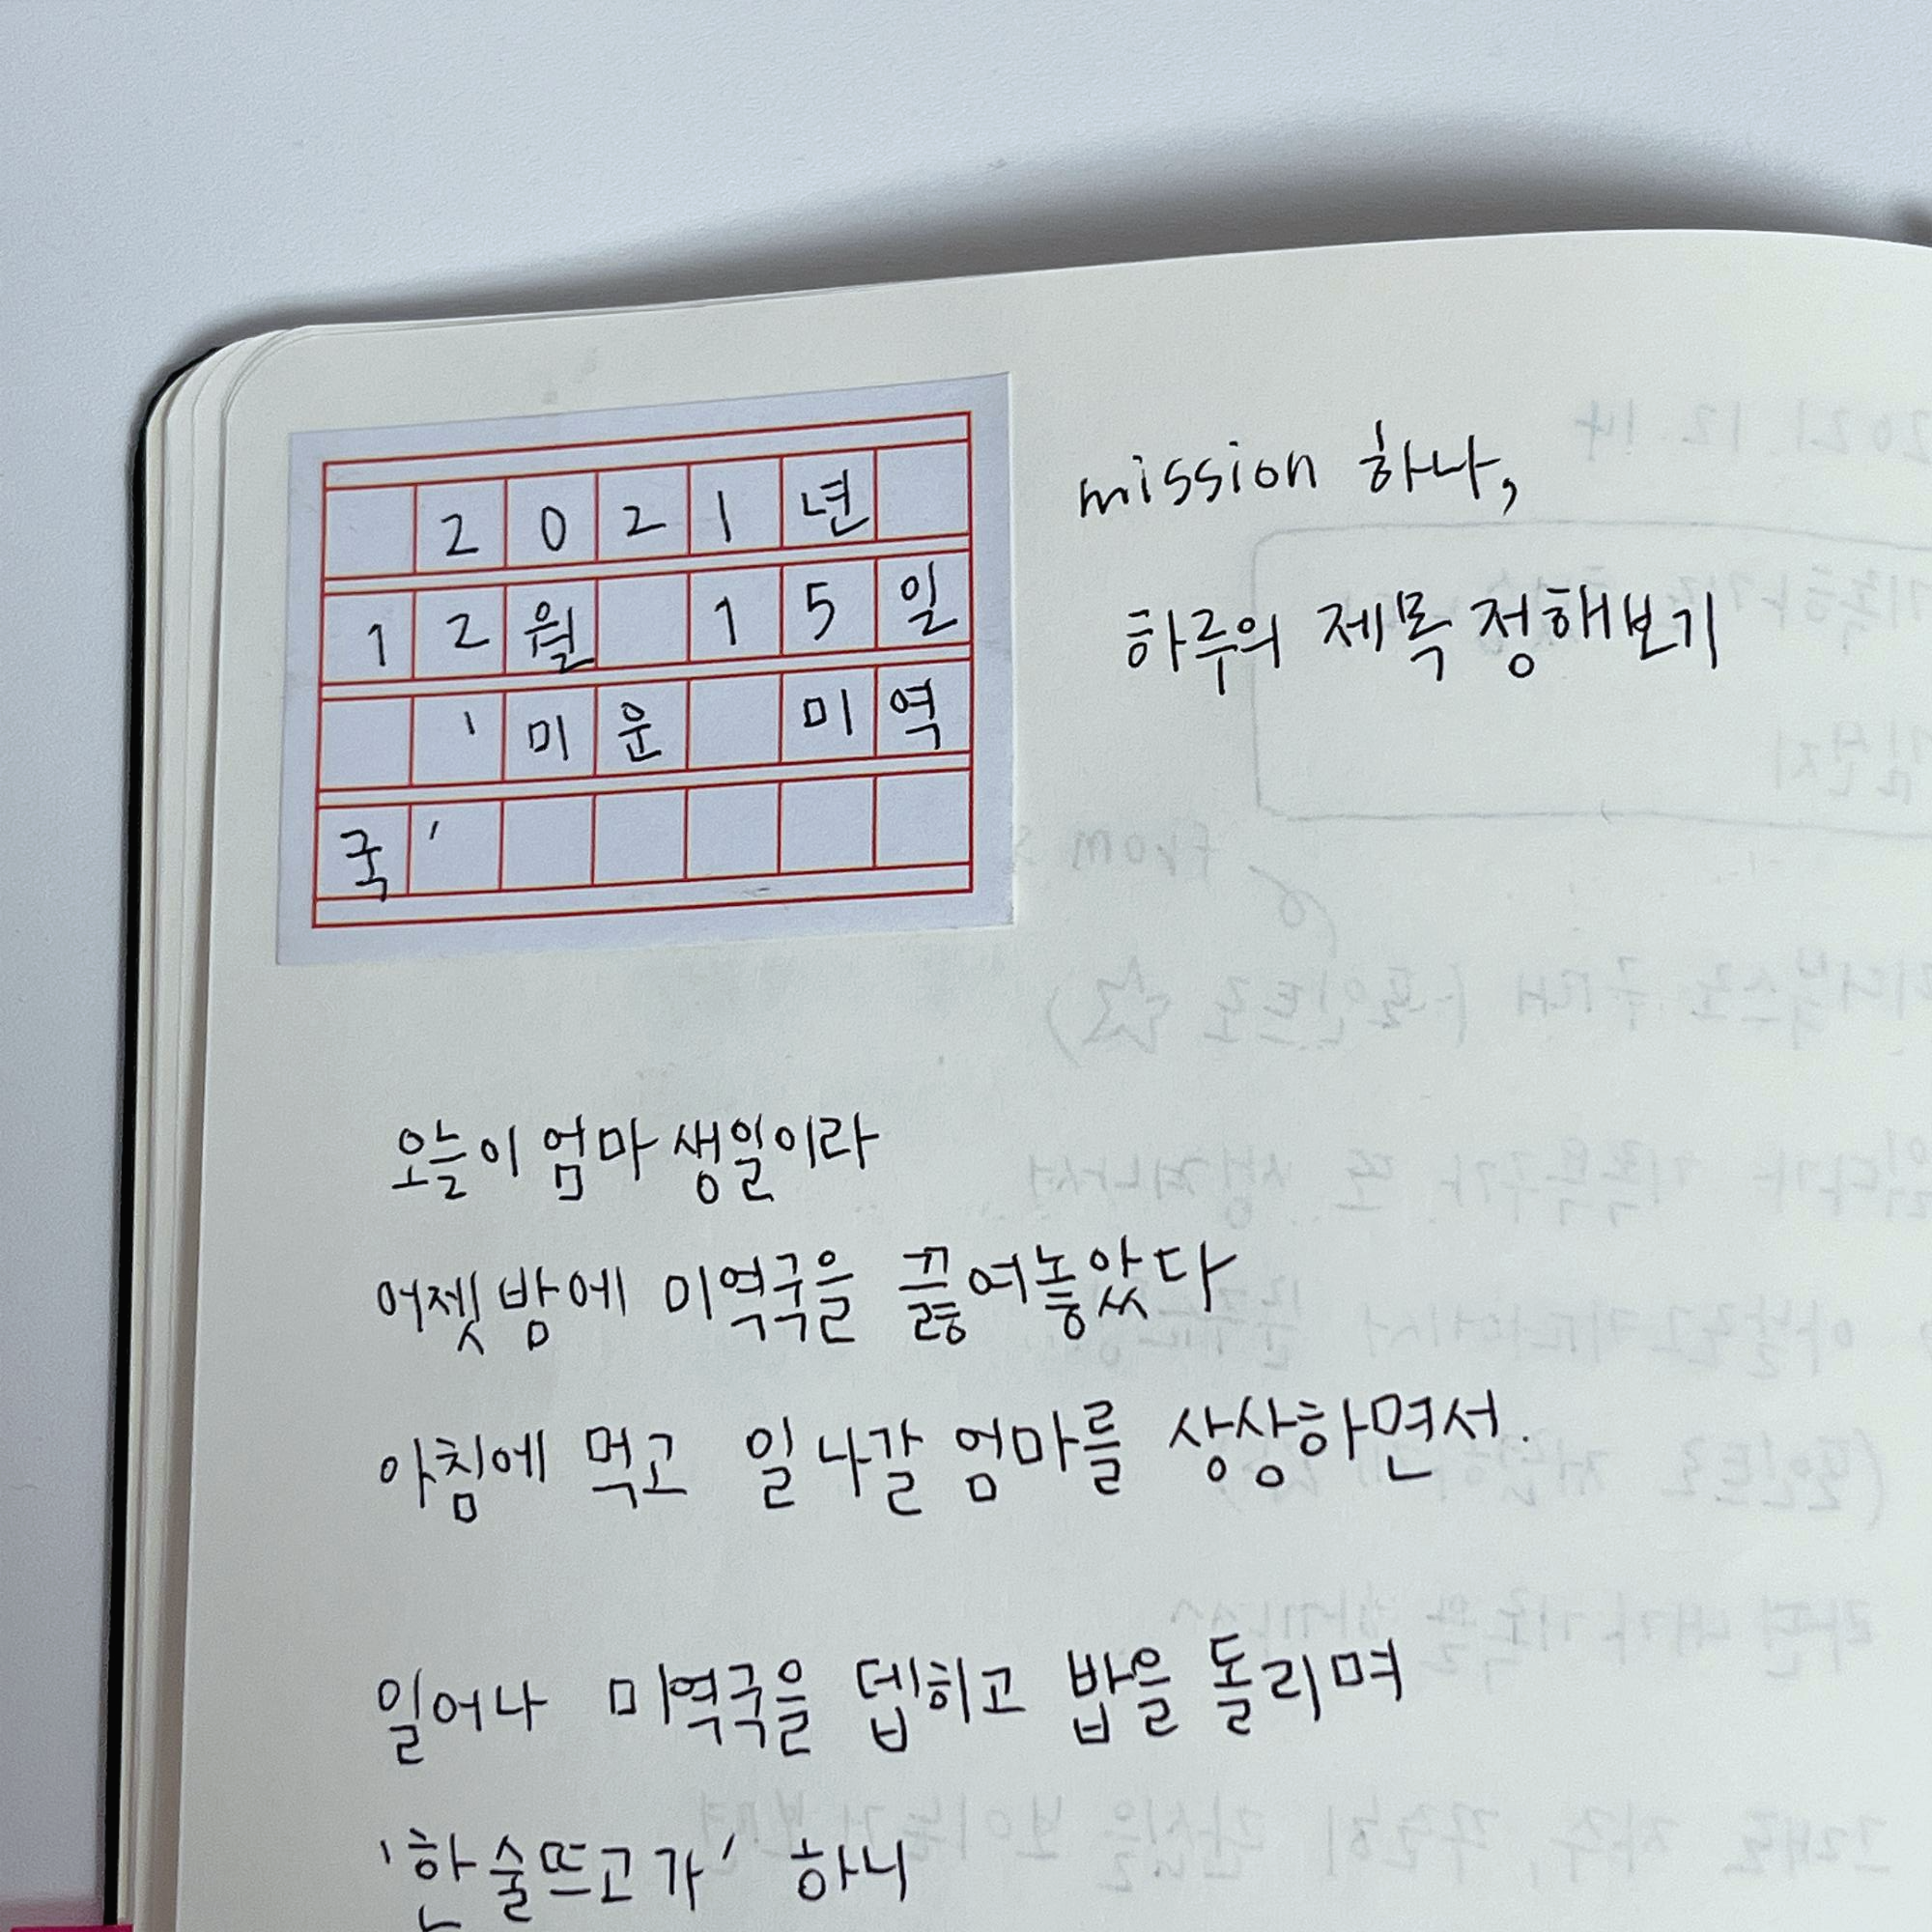 2021년
12월 15일
'미운 미역
국'
mission 하나,
하루의 제목 정해보기
오늘이 엄마 생일이라
어젯밤에 미역국을 끓여놓았다
아침에 먹고 일 나갈 엄마를 상상하면서.
일어나 미역국을 뎁히고 밥을 돌리며
'한술뜨고가' 하니